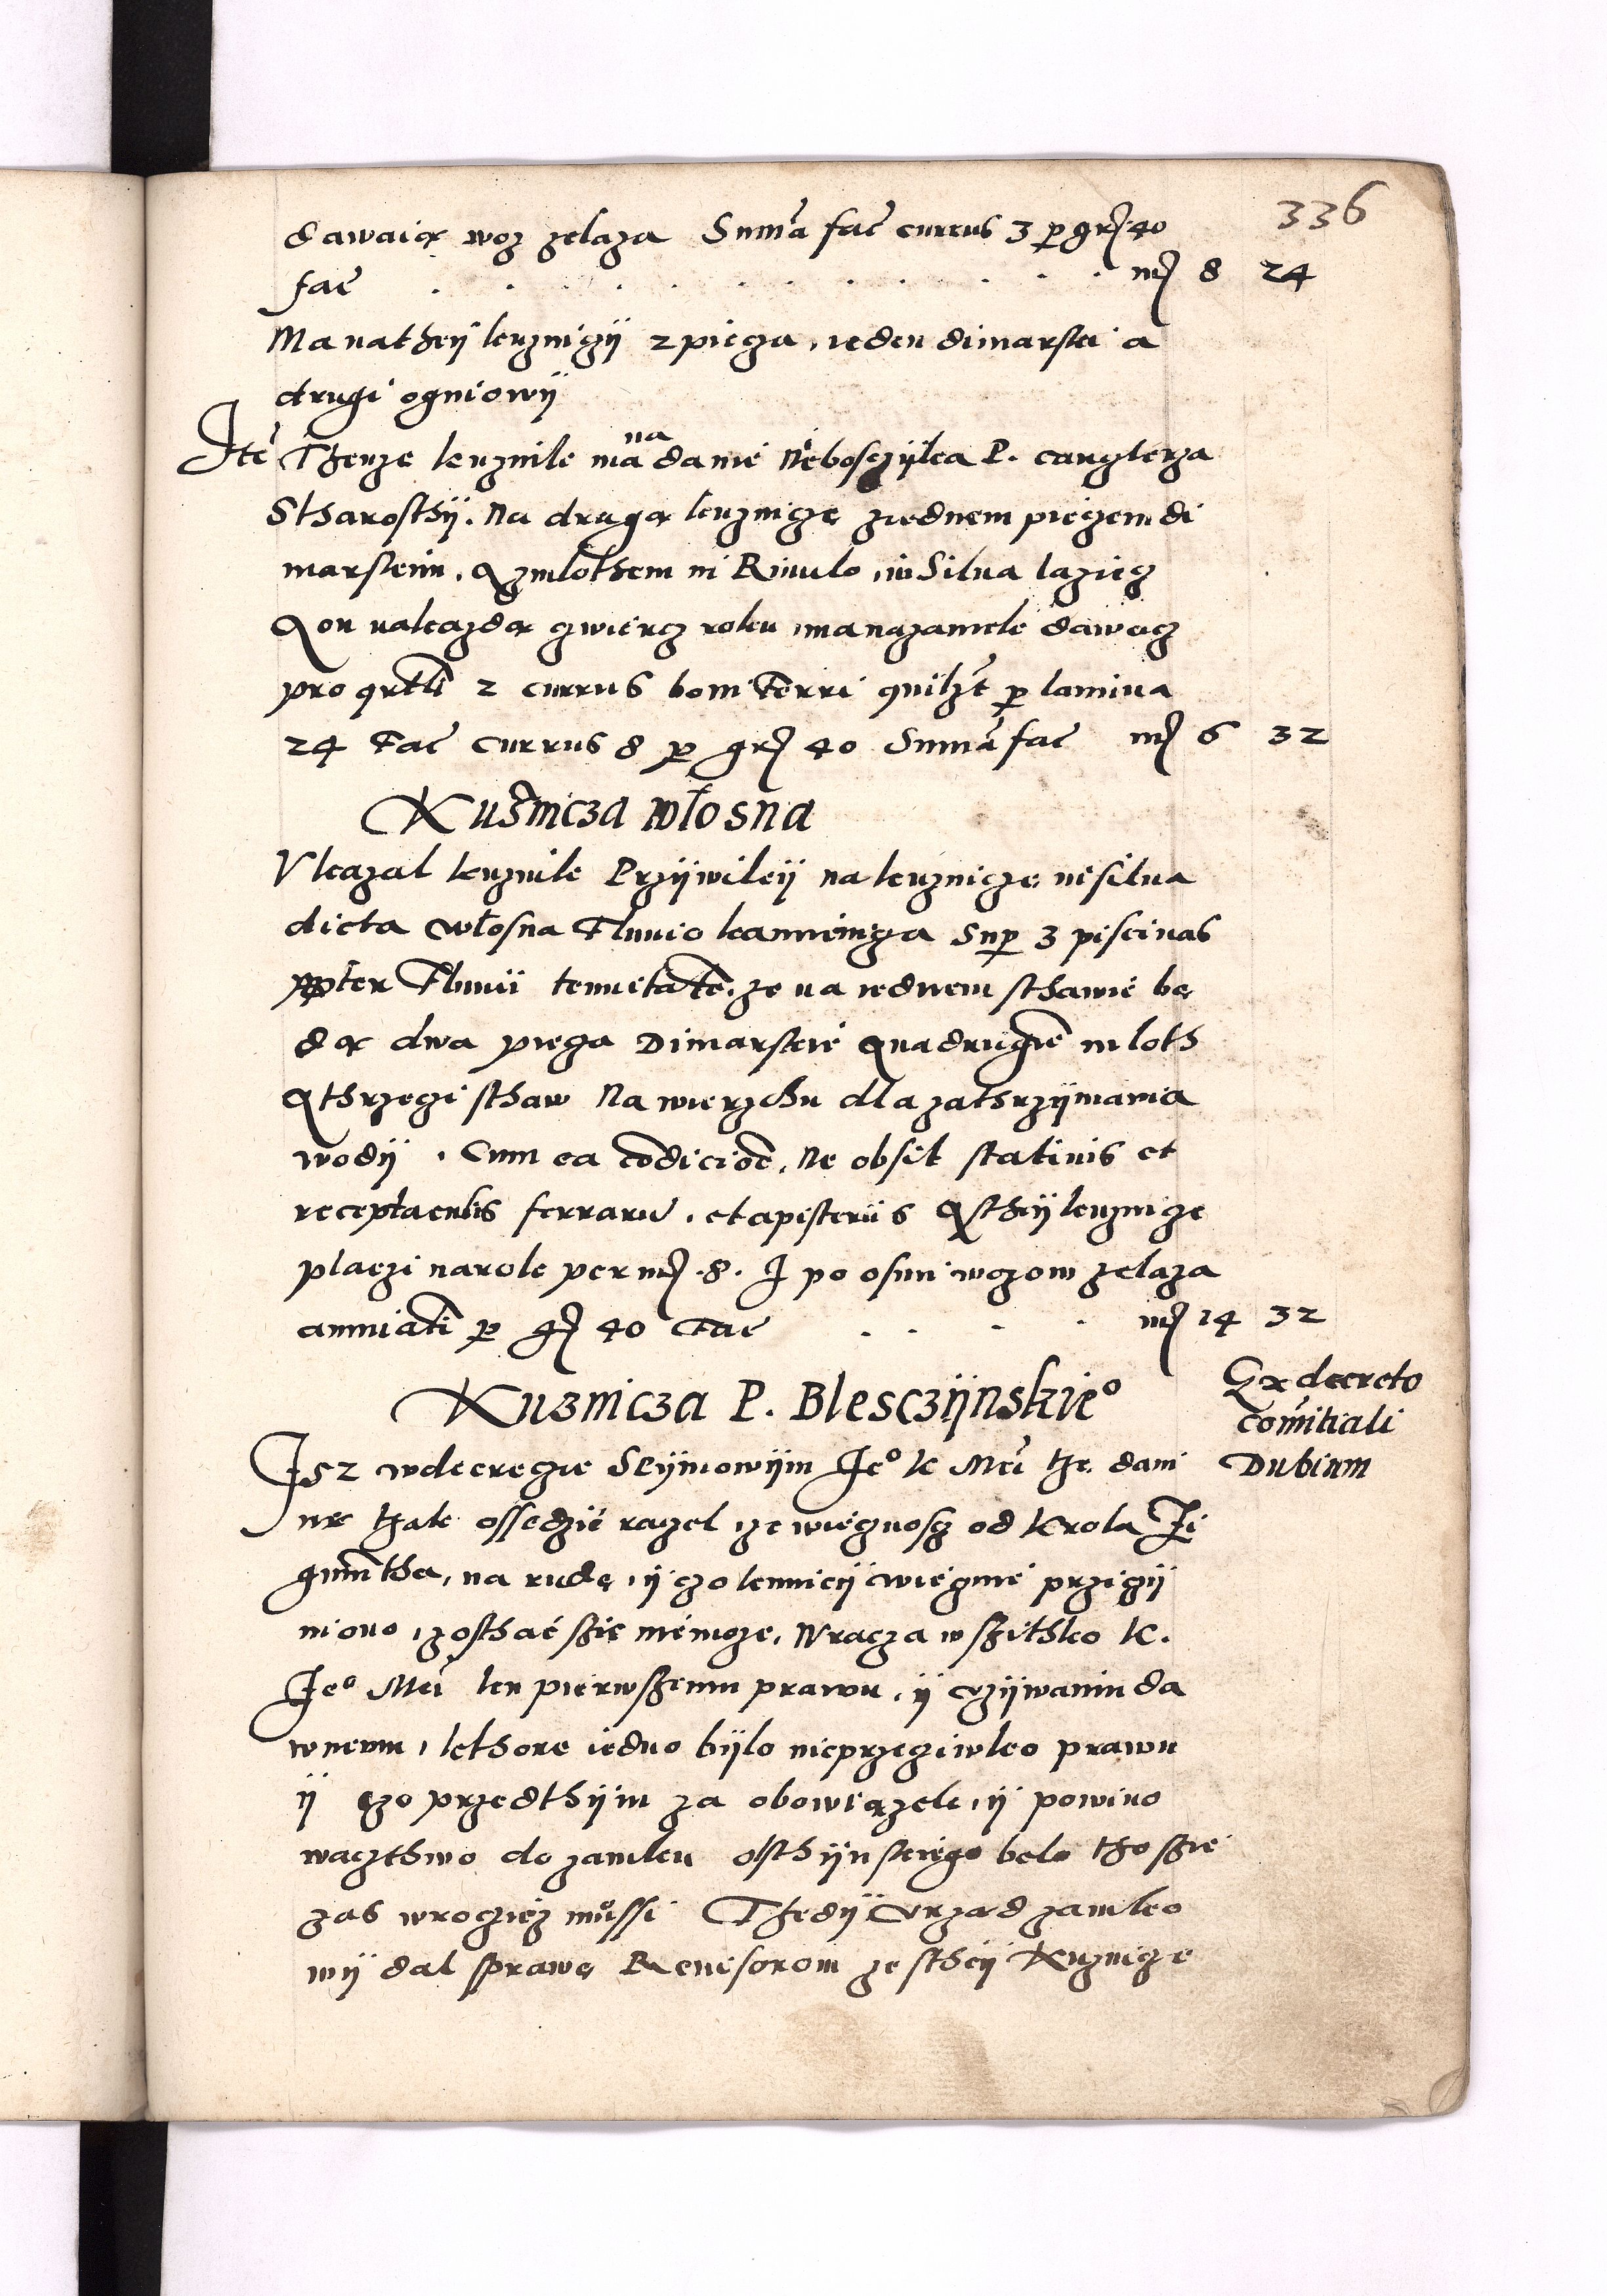 336
dawaią woz zelaza Suma̅ fac̅ currus 3 p̱ grꝭ 40
fac̅ . . . . . . . . . . mꝭ 8 24
Ma nathey kuznigÿ 2 piecza, ieden dimarski a
drugi ogniowÿ
Ite̅ Thenze kuznik ma na danie Nebosczÿka P. canglerza
Starosthÿ. Na drugą kuznicze ziednem piecem di
marskim. Q zmlothem in Rivulo, in Silva lazieg
Q on nakazdą cwiercz roku, ma nazamek dawacz
pro qrtli 2 currus boni ferri quilzt p̱ lamina
24 Fac̅ currus 8 p̱ grꝭ 40 Suma̅ fac̅ mꝭ 6 32
Kuznicza włosna
Vkazal kuznik Przÿwileÿ na kuznicze in silva
dicta włosna Fluvio kamienicza Sup̱ 3 piscinas
p̱pter Fluvii tenuitate̅. ze na iednem sthawie bę
dą dwa pieca Dimarskie quadrugie̅ mloth
Q thrzeci sthaw Na wierzchu dla zathrzÿmania
wodÿ . Cum ea co̅dicio̅e, Ne obsit stativis et
receptaculis ferraru̅. et apisteriis Q stheÿ kuznicze
placzi narok per mꝭ .8. I po osmi wozow zelaza
annuati̅ p̱ gꝭ 40 Fac̅ . . . . mꝭ 14 32
Kuznicza P. Blesczÿnskieº
Ex decreto
comitiali
Dubium
Isz wdecregie Seÿmowÿm Jeº K Mci̅ the dani
nę thak ossedzie raczel ze wiecznosz od Krola Zi
gmu̅tha, na rudę, ÿ czokemiciÿ wiecznie przicÿ
niono, zosthac̅ szie niemoze, Wracza wszithko K.
Jeº Mci̅ ku pierwszemu prawu, ÿ vzÿwaniu da
wnemu, kthore iedno bÿlo nieprzeciwko prawu
ÿ czo przedthÿm za obowiązek, ÿ powino
waczthwo do zamku olsthÿnskiego belo tho szie
zas wroczicz mussi Thedÿ Vrzad zamko
wÿ dal sprawę Revisorom ze stheÿ Kuznicze